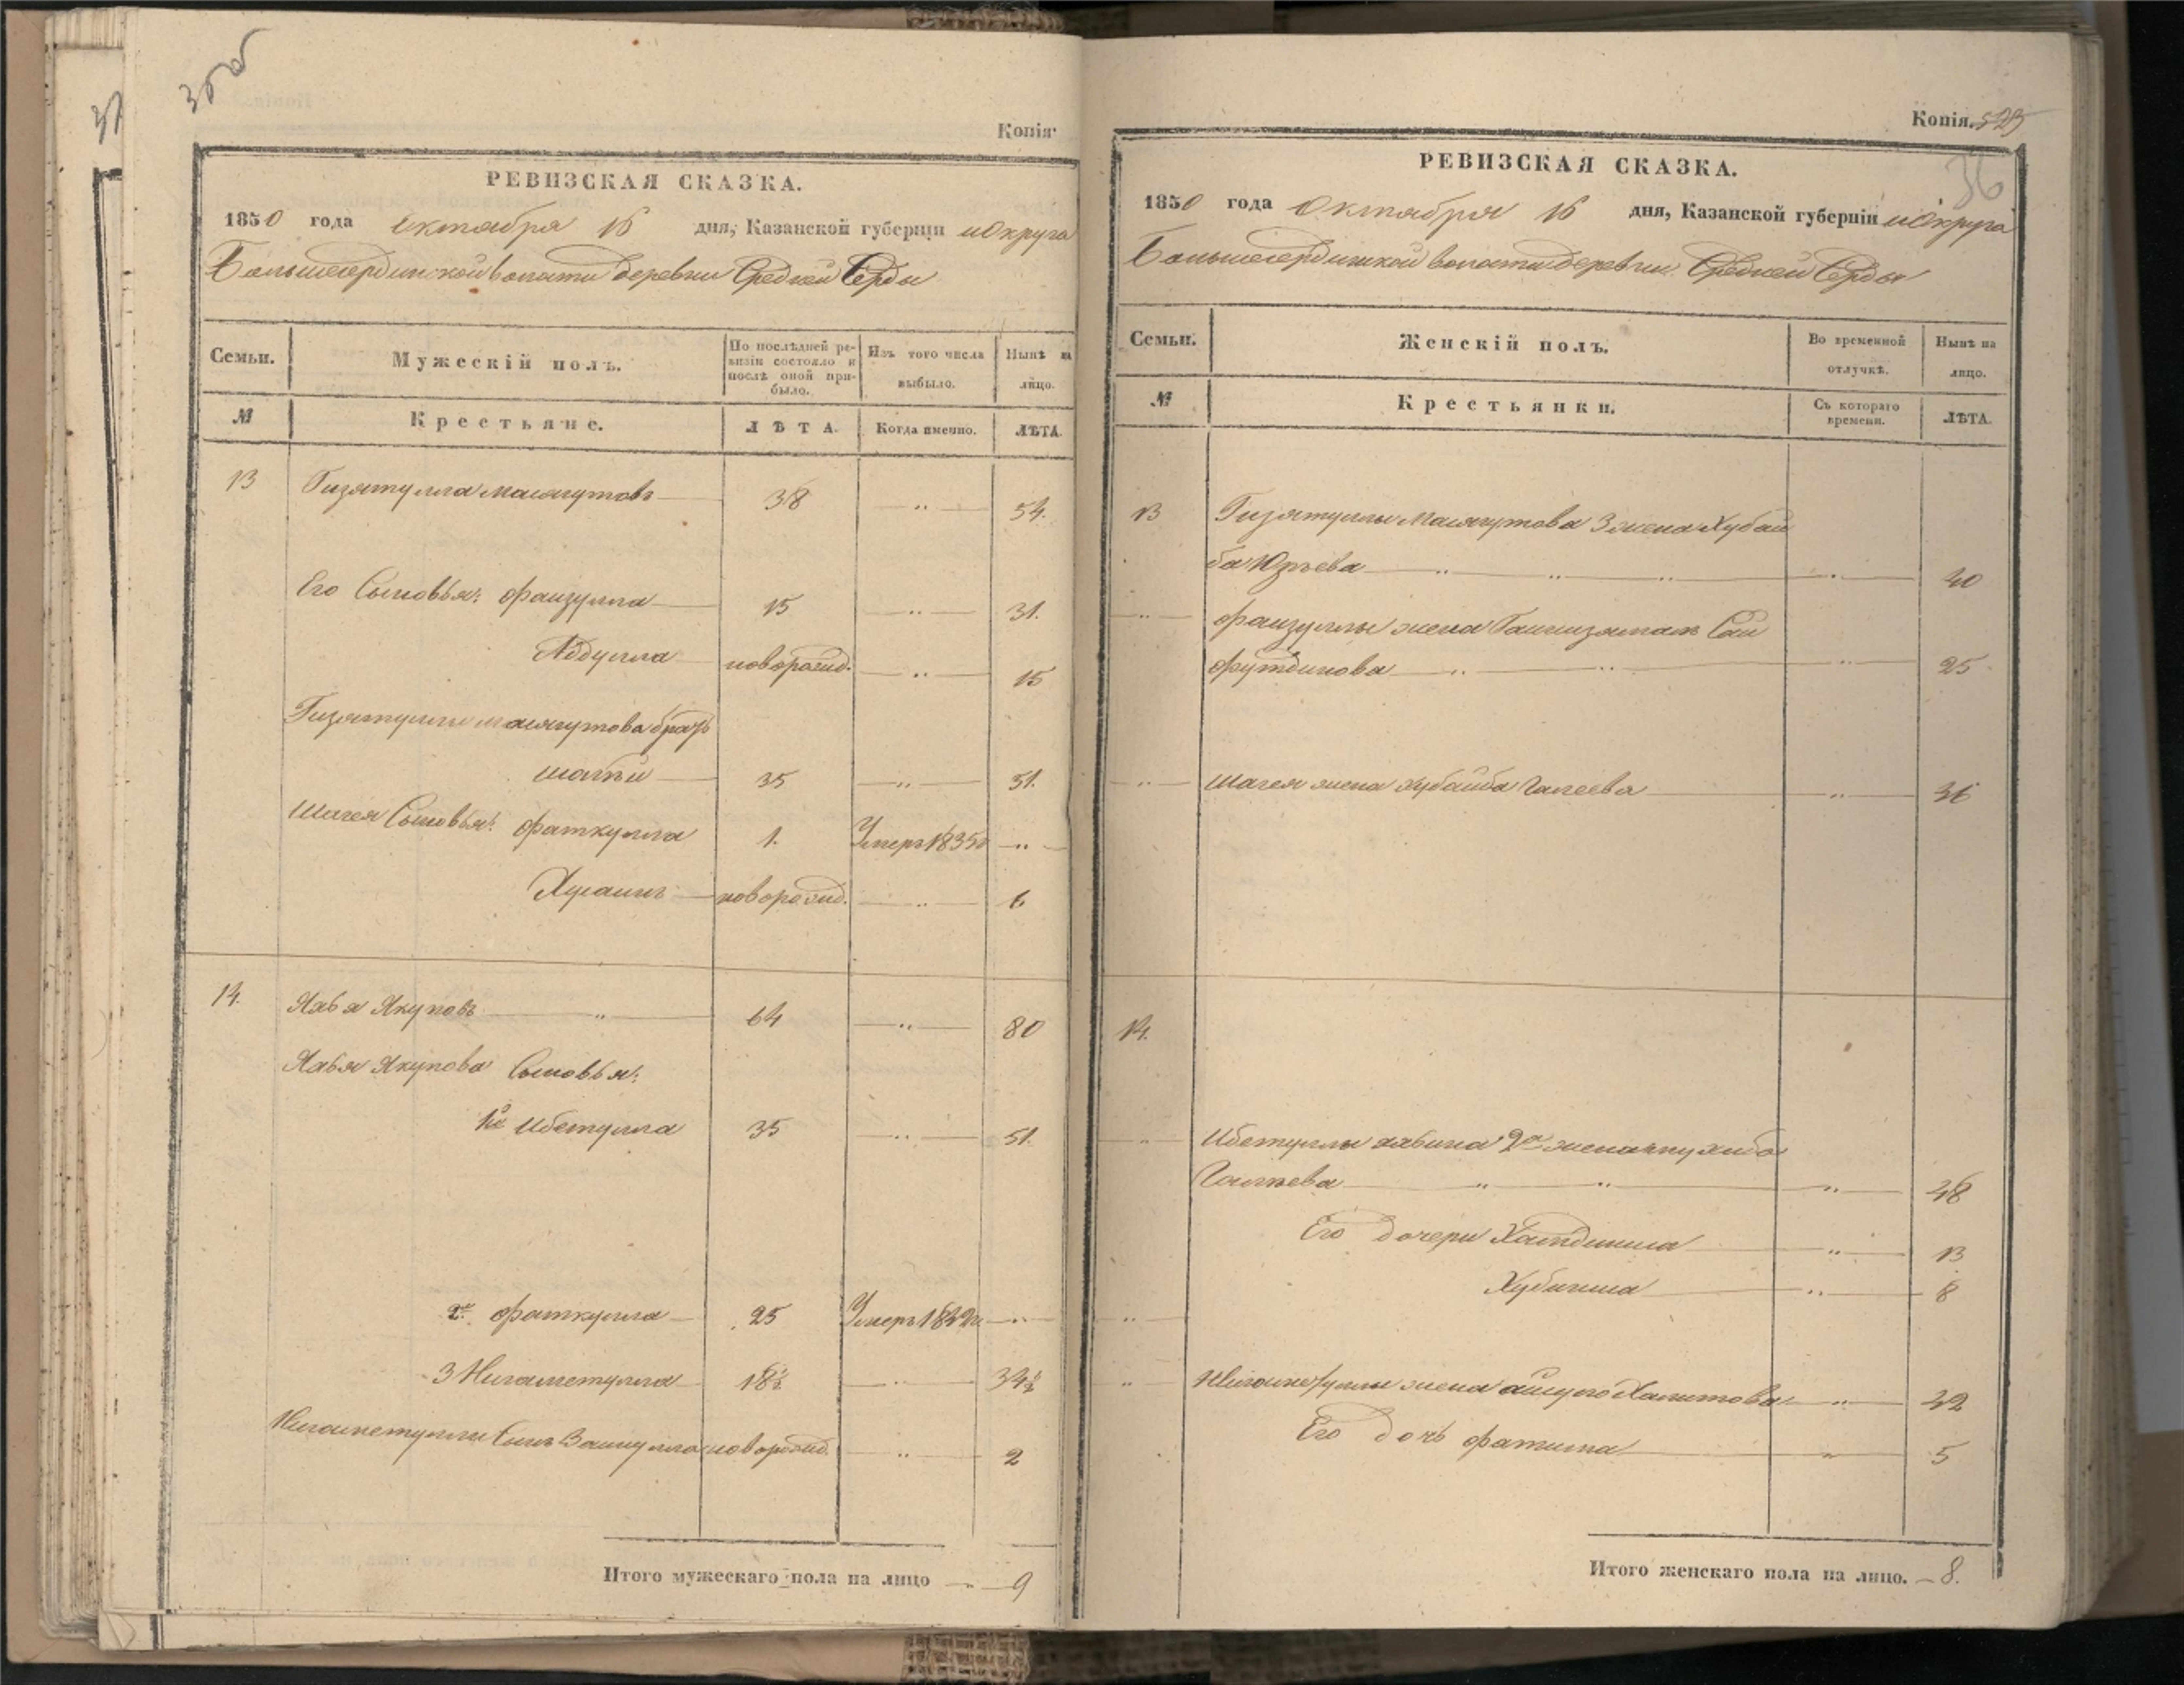 35об
Копія.
РЕВИЗСКАЯ СКАЗКА.
1850 года октября 16 дня, Казанской губерніи и Округа
Большесердинской волости деревни Средней Серды
Семьи. Мужескій полъ. По послѣдней ре- Изъ того числа Нынѣ на
визіи состояло и
послѣ оной при- выбыло. лицо.
было.
№ Крестьяне. ЛѢТА. Когда именно. ЛѢТА.
13 Гизятулла Масягутовъ 38 " 54.
Его Сыновья: Фаизулла 15 " 31.
Абдулла новорожд. " 15
Гизятуллы Масягутова братъ
Шагѣй 35 " 51.
Шагея Сыновья: Фаткулла 1. Умеръ 1835 "
Хусаинъ новорожд. " 6
14. Яхья Якуповъ " 64 " 80
Яхья Якупова Сыновья:
1й Ибетулла 35 " 51
2й Фаткулла 25 Умеръ "
3 Нигаметулла 18½ " 34½
Нигаметуллы Сынъ новорожд. " 2
Итого мужескаго пола на лицо " 9
Копія. 525
36
РЕВИЗСКАЯ СКАЗКА.
1850 года Октября 16 дня, Казанской губерніи и Округа
Большесердинской волости деревни Средней Серды
Семьи. Женскій полъ. Во временной Нынѣ на
отлучкѣ. лицо.
№ Крестьянки. Съ котораго ЛѢТА.
времени.
13 Гизятуллы Масягутова 3 жена Хубай
ба Юзѣева " " " " 40
" Фаизуллы жена Сай
футдинова " " " 25
" Шагея жена Хубайба Галеева " 36
14.
" Ибетуллы 2я жена
Галѣева " " " 48
Его дочери " 13
" 8
"
" Нигаметуллы жена " 42
Его дочь Фатима " 5
Итого женскаго пола на лицо. 8.